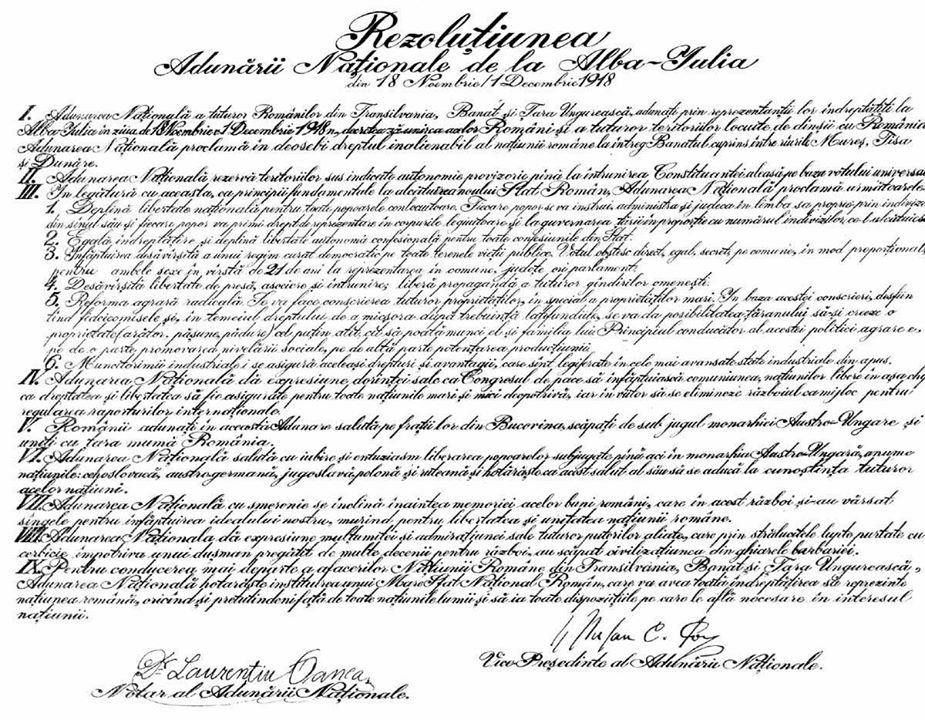 Rezoluțiunea
Adunării Naționale de la Alba-Iulia
din 18 Noembrie/1 Decembrie 1918
I. Adunarea Națională a tuturor Românilor din Transilvania, Banat și Țara Ungurească, adunați prin reprezentanții lor îndreptățiți la
Alba-Iulia în ziua de 18 Noembrie/1 Decembrie 1918, decretează unirea acelor Români și a tuturor teritoriilor locuite de dînșii cu România.
Adunarea Națională proclamă în deosebi dreptul inalienabil al națiunii române la întreg Banatul cuprins între rîurile Mureș, Tisa
și Dunăre.
II. Adunarea Națională rezervă teritoriilor sus indicate autonomie provizorie pînă la întrunirea Constituantei aleasă pe baza votului universal.
III. În legătură cu aceasta, ca principii fundamentale la alcătuirea noului Stat Român, Adunarea Națională proclamă următoarele:
1. Deplină libertate națională pentru toate popoarele conlocuitoare. Fiecare popor se va instrui, administra și judeca în limba sa proprie prin indivizi
din sînul său și fiecare popor va primi drept de reprezentare în corpurile legiuitoare și la guvernarea țării în proporție cu numărul indivizilor ce-l alcătuiesc.
2. Egală îndreptățire și deplină libertate autonomă confesională pentru toate confesiunile din Stat.
3. Înfăptuirea desăvîrșită a unui regim curat democratic pe toate terenele vieții publice. Votul obștesc, direct, egal, secret, pe comune, în mod proporțional,
pentru ambele sexe în vîrstă de 21 de ani la reprezentarea în comune, județe ori parlament.
4. Desăvîrșită libertate de presă, asociere și întrunire; liberă propagandă a tuturor gîndirilor omenești.
5. Reforma agrară radicală. Se va face conscrierea tuturor proprietăților, în special a proprietăților mari. În baza acestei conscrieri, desființ
înd fideicomisele și, în temeiul dreptului de a micșora după trebuință latifundiile, se va da posibilitatea țăranului să-și creeze o
proprietate (arător, pășune, pădure) cel puțin atît cît să poată munci el și familia lui. Principiul conducător al acestei politici agrare e,
pe de o parte promovarea nivelării sociale, pe de altă parte potențarea producțiunii.
6. Muncitorimii industriale i se asigură aceleași drepturi și avantagii, care sînt legiferate în cele mai avansate state industriale din apus.
IV. Adunarea Națională dă expresiune dorinței sale ca Congresul de pace să înfăptuiască comuniunea națiunilor libere în așa chip
ca dreptatea și libertatea să fie asigurate pentru toate națiunile mari și mici deopotrivă, iar în viitor să se elimineze războiul ca mijloc pentru
regularea raporturilor internaționale.
V. Românii adunați în această Adunare salută pe frații lor din Bucovina, scăpați de sub jugul monarhiei Austro-Ungare și
uniți cu țara mumă România.
VI. Adunarea Națională salută cu iubire și entuziasm liberarea popoarelor subjugate pînă aci în monarhia Austro-Ungară, anume
națiunile: cehoslovacă, austrogermană, jugoslavă, polonă și ruteană și hotărăște ca acest salut al său să se aducă la cunoștința tuturor
acelor națiuni.
VII. Adunarea Națională cu smerenie se înclină înaintea memoriei acelor buni români, care în acest război și-au vărsat
sîngele pentru înfăptuirea idealului nostru, murind pentru libertatea și unitatea națiunii române.
VIII. Adunarea Națională dă expresiune mulțumitei și admirațiunei sale tuturor puterilor aliate, care prin strălucitele lupte purtate cu
cerbicie împotriva unui dușman pregătit de multe decenii pentru război, au scăpat civilizațiunea din ghiarele barbariei.
IX. Pentru conducerea mai departe a afacerilor Națiunii Române din Transilvania, Banat și Țara Ungurească,
Adunarea Națională hotărăște instituirea unui Mare Sfat Național Român, care va avea toată îndreptățirea să reprezinte
națiunea română, oricînd și pretutindeni față de toate națiunile lumii și să ia toate dispozițiile pe care le află necesare în interesul
națiunii.
Ștefan C. Pop
Vice Președinte al Adunării Naționale.
Dr Laurențiu Oanea
Notar al Adunării Naționale.